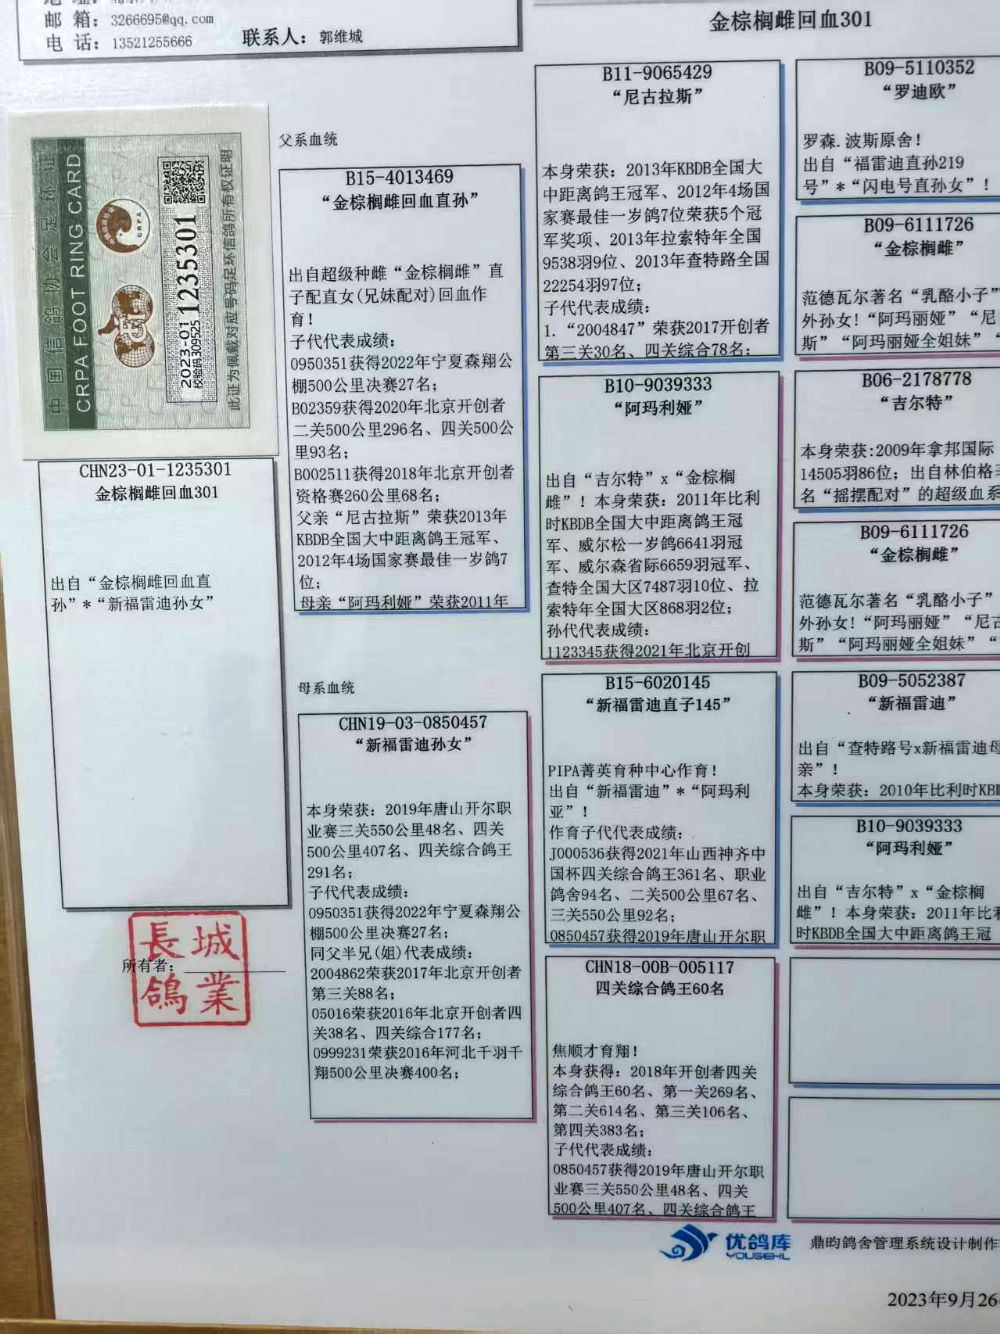 邮 箱：3266695@qq.com
电 话：13521255666
联系人：郭维城
金棕榈雌回血301
中国信鸽协会足环证
CRPA FOOT RING CARD
CRPA
2023-01 1235301
校验码309525
此证为佩戴对应号码足环信鸽所有权证明
CHN23-01-1235301
金棕榈雌回血301
出自“金棕榈雌回血直
孙”*“新福雷迪孙女”
所有者：
長城
鴿業
父系血统
B15-4013469
“金棕榈雌回血直孙”
出自超级种雌“金棕榈雌”直
子配直女(兄妹配对)回血作
育！
子代代表成绩：
0950351获得2022年宁夏森翔公
棚500公里决赛27名；
B02359获得2020年北京开创者
二关500公里296名、四关500公
里93名；
B002511获得2018年北京开创者
资格赛260公里68名；
父亲“尼古拉斯”荣获2013年
KBDB全国大中距离鸽王冠军、
2012年4场国家赛最佳一岁鸽7
位；
母亲“阿玛利娅”荣获2011年
母系血统
CHN19-03-0850457
“新福雷迪孙女”
本身荣获：2019年唐山开尔职
业赛三关550公里48名、四关
500公里407名、四关综合鸽王
291名；
子代代表成绩：
0950351获得2022年宁夏森翔公
棚500公里决赛27名；
同父半兄(姐)代表成绩：
2004862荣获2017年北京开创者
第三关88名；
05016荣获2016年北京开创者四
关38名、四关综合177名；
0999231荣获2016年河北千羽千
翔500公里决赛400名；
B11-9065429
“尼古拉斯”
本身荣获：2013年KBDB全国大
中距离鸽王冠军、2012年4场国
家赛最佳一岁鸽7位荣获5个冠
军奖项、2013年拉索特年全国
9538羽9位、2013年查特路全国
22254羽97位；
子代代表成绩：
1.“2004847”荣获2017开创者
第三关30名、四关综合78名；
B10-9039333
“阿玛利娅”
出自“吉尔特”x“金棕榈
雌”！本身荣获：2011年比利
时KBDB全国大中距离鸽王冠
军、威尔松一岁鸽6641羽冠
军、威尔森省际6659羽冠军、
查特全国大区7487羽10位、拉
索特年全国大区868羽2位；
孙代代表成绩：
1123345获得2021年北京开创
B15-6020145
“新福雷迪直子145”
PIPA菁英育种中心作育！
出自“新福雷迪”*“阿玛利
亚”！
作育子代代表成绩：
J000536获得2021年山西神齐中
国杯四关综合鸽王361名、职业
鸽舍94名、二关500公里67名、
三关550公里92名；
0850457获得2019年唐山开尔职
CHN18-00B-005117
四关综合鸽王60名
焦顺才育翔！
本身获得：2018年开创者四关
综合鸽王60名、第一关269名、
第二关614名、第三关106名、
第四关383名；
子代代表成绩：
0850457获得2019年唐山开尔职
业赛三关550公里48名、四关
500公里407名、四关综合鸽王
B09-5110352
“罗迪欧”
罗森.波斯原舍！
出自“福雷迪直孙219
号”*“闪电号直孙女”！
B09-6111726
“金棕榈雌”
范德瓦尔著名“乳酪小子”
外孙女！“阿玛丽娅”“尼
斯”“阿玛丽娅全姐妹”
B06-2178778
“吉尔特”
本身荣获:2009年拿邦国际
14505羽86位；出自林伯格
名“摇摆配对”的超级血系
B09-6111726
“金棕榈雌”
范德瓦尔著名“乳酪小子”
外孙女！“阿玛丽娅”“尼古
斯”“阿玛丽娅全姐妹”“
B09-5052387
“新福雷迪”
出自“查特路号x新福雷迪母
亲”！
本身荣获：2010年比利时KBD
B10-9039333
“阿玛利娅”
出自“吉尔特”x“金棕榈
雌”！本身荣获：2011年比利
时KBDB全国大中距离鸽王冠
优鸽库
YOUGEKU
鼎昀鸽舍管理系统设计制作
2023年9月26